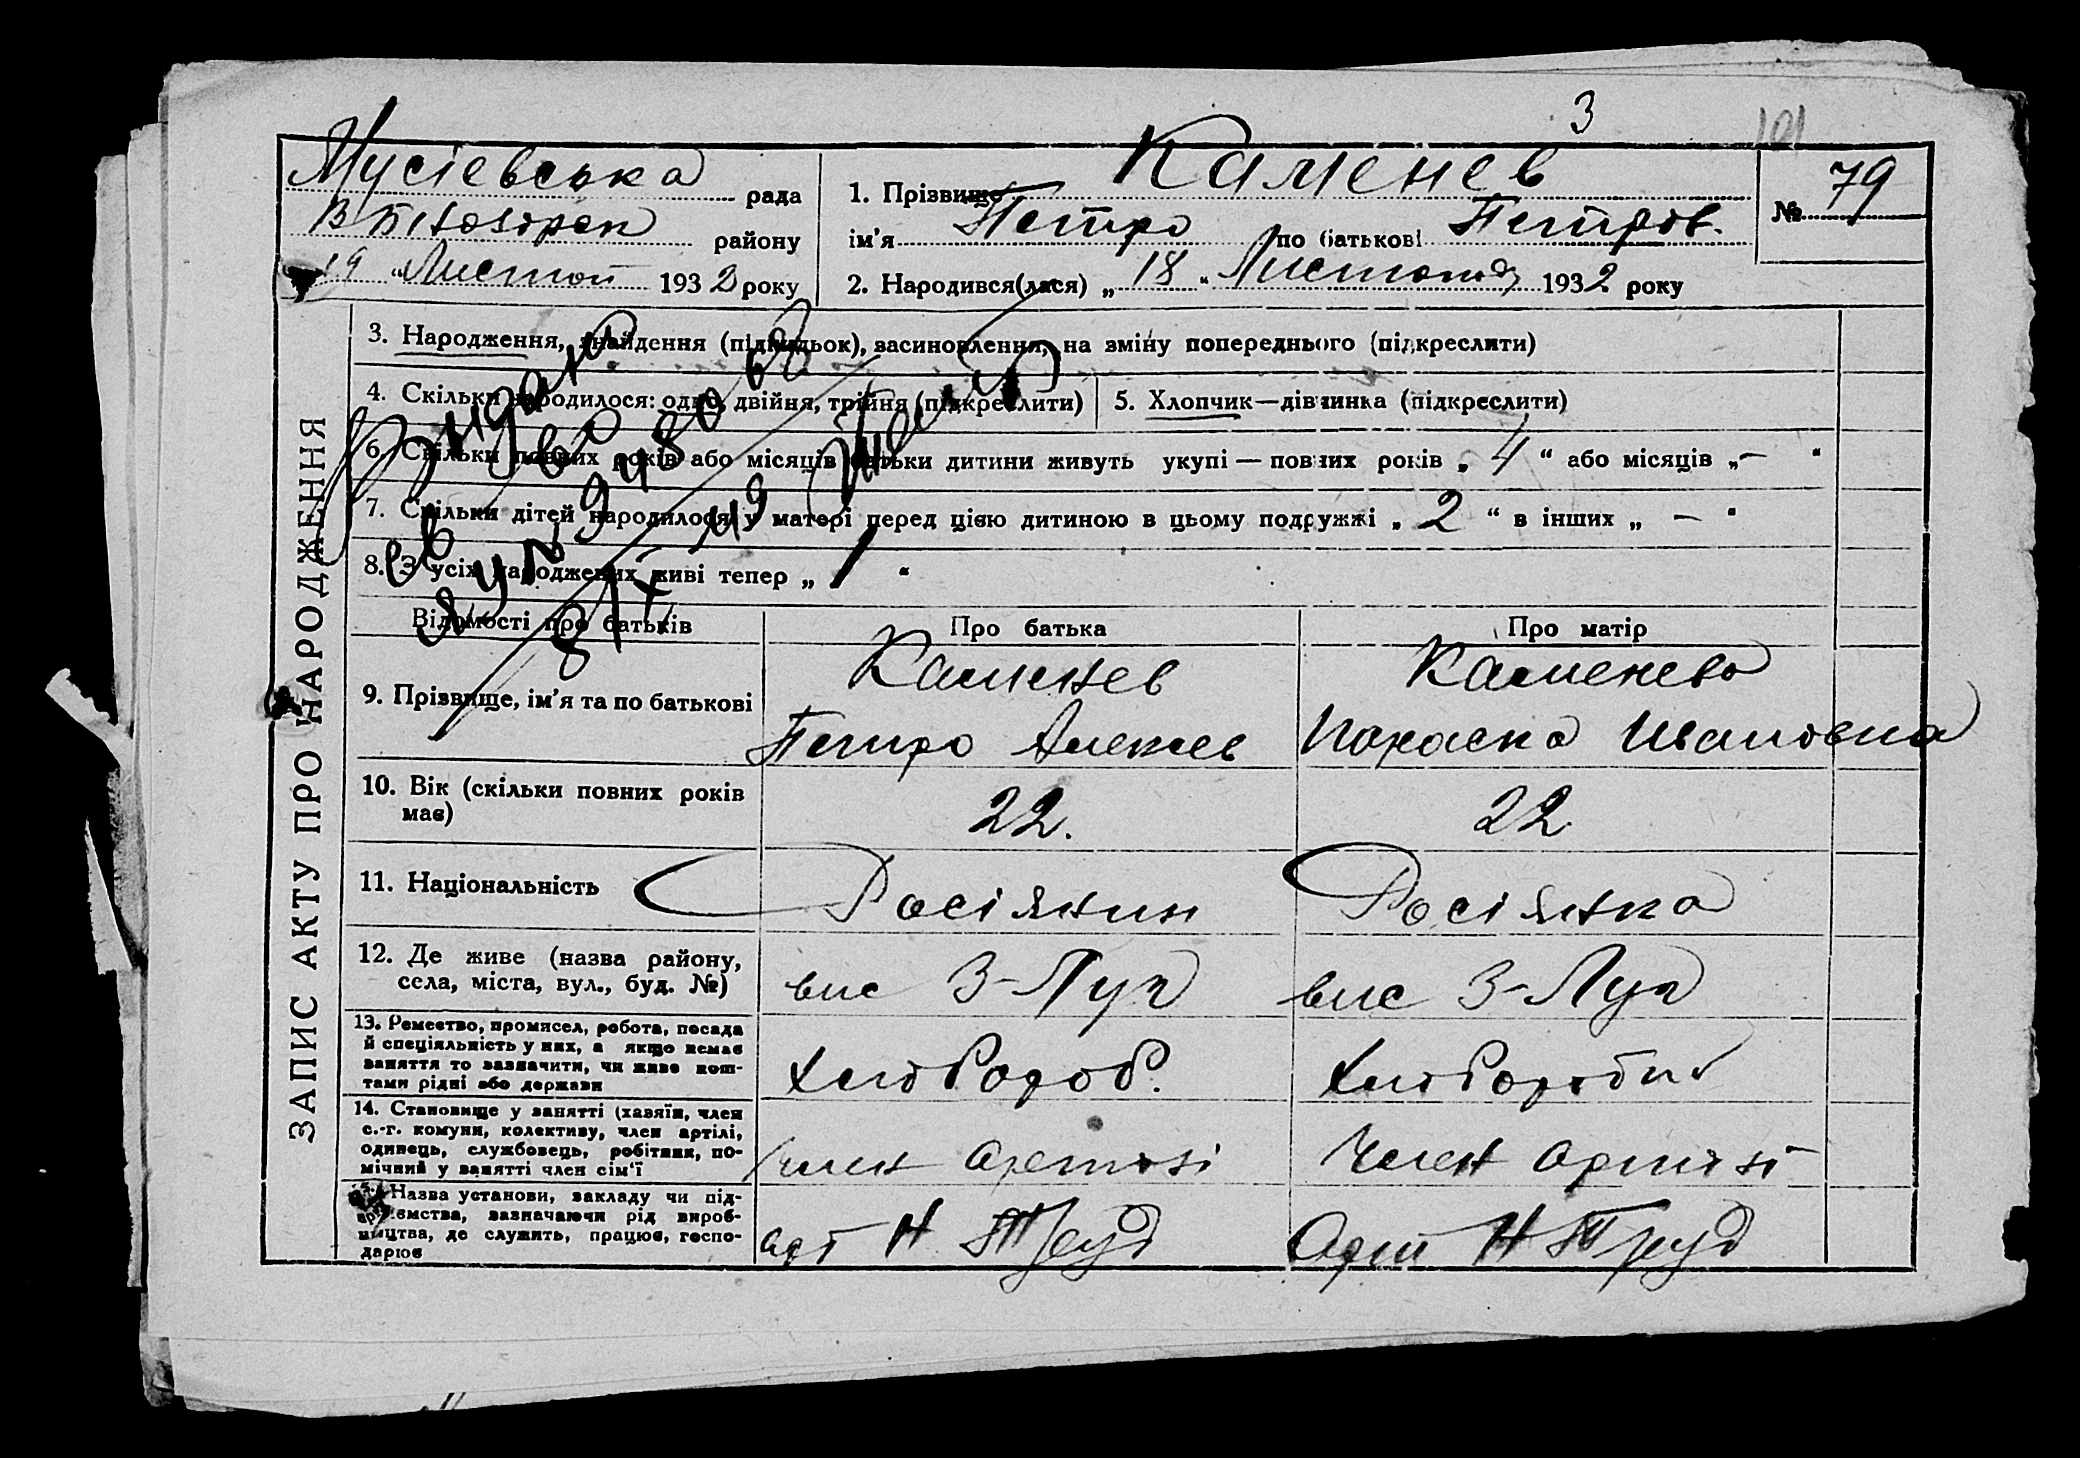 3
101
Мусіевська рада
району
"19" Листоп 1932 року
1. Прізвище Каменев
ім'я Петро по батькові Петров.
2. Народився(лася) „18" Листопад 1932 року
№ 79
ЗАПИС АКТУ ПРО НАРОДЖЕННЯ
3. Народження, знайдення (підкидьок), засиновлення, на зміну попереднього (підкреслити)
4. Скільки народилося: одно, двійня, трійня (підкреслити)
5. Хлопчик—дівчинка (підкреслити)
6. Скільки повних років або місяців батьки дитини живуть укупі — повних років „4" або місяців „—"
7. Скільки дітей народилося у матері перед цією дитиною в цьому подружжі „2" в інших „—"
8. З усіх народжених живі тепер „1"
Видано
Відомості про батьків Про батька Про матір
9. Прізвище, ім'я та по батькові
Каменев
Петро Алексеев
Каменева
Параска Ивановна
10. Вік (скільки повних років
має)
22.
22
11. Національність Росіянин Росіянка
12. Де живе (назва району,
села, міста, вул., буд. №)
вис 3-Луч
вис 3-Луч
13. Ремество, промисел, робота, посада
й спеціяльність у них, а якщо немає
заняття то зазначити, чи живе кош-
тами рідні або держави
Хлібороб.
Хліборобка
14. Становище у занятті (хазяїн, член
с.-г. комуни, колективу, член артілі,
одинець, службовець, робітник, по-
мічний у занятті член сім'ї
член артілі
Член артілі
15. Назва установи, закладу чи під-
приємства, зазначаючи рід вироб-
ництва, де служить, працює, госпо-
дарює
арт Н Труд
Арт Н Труд